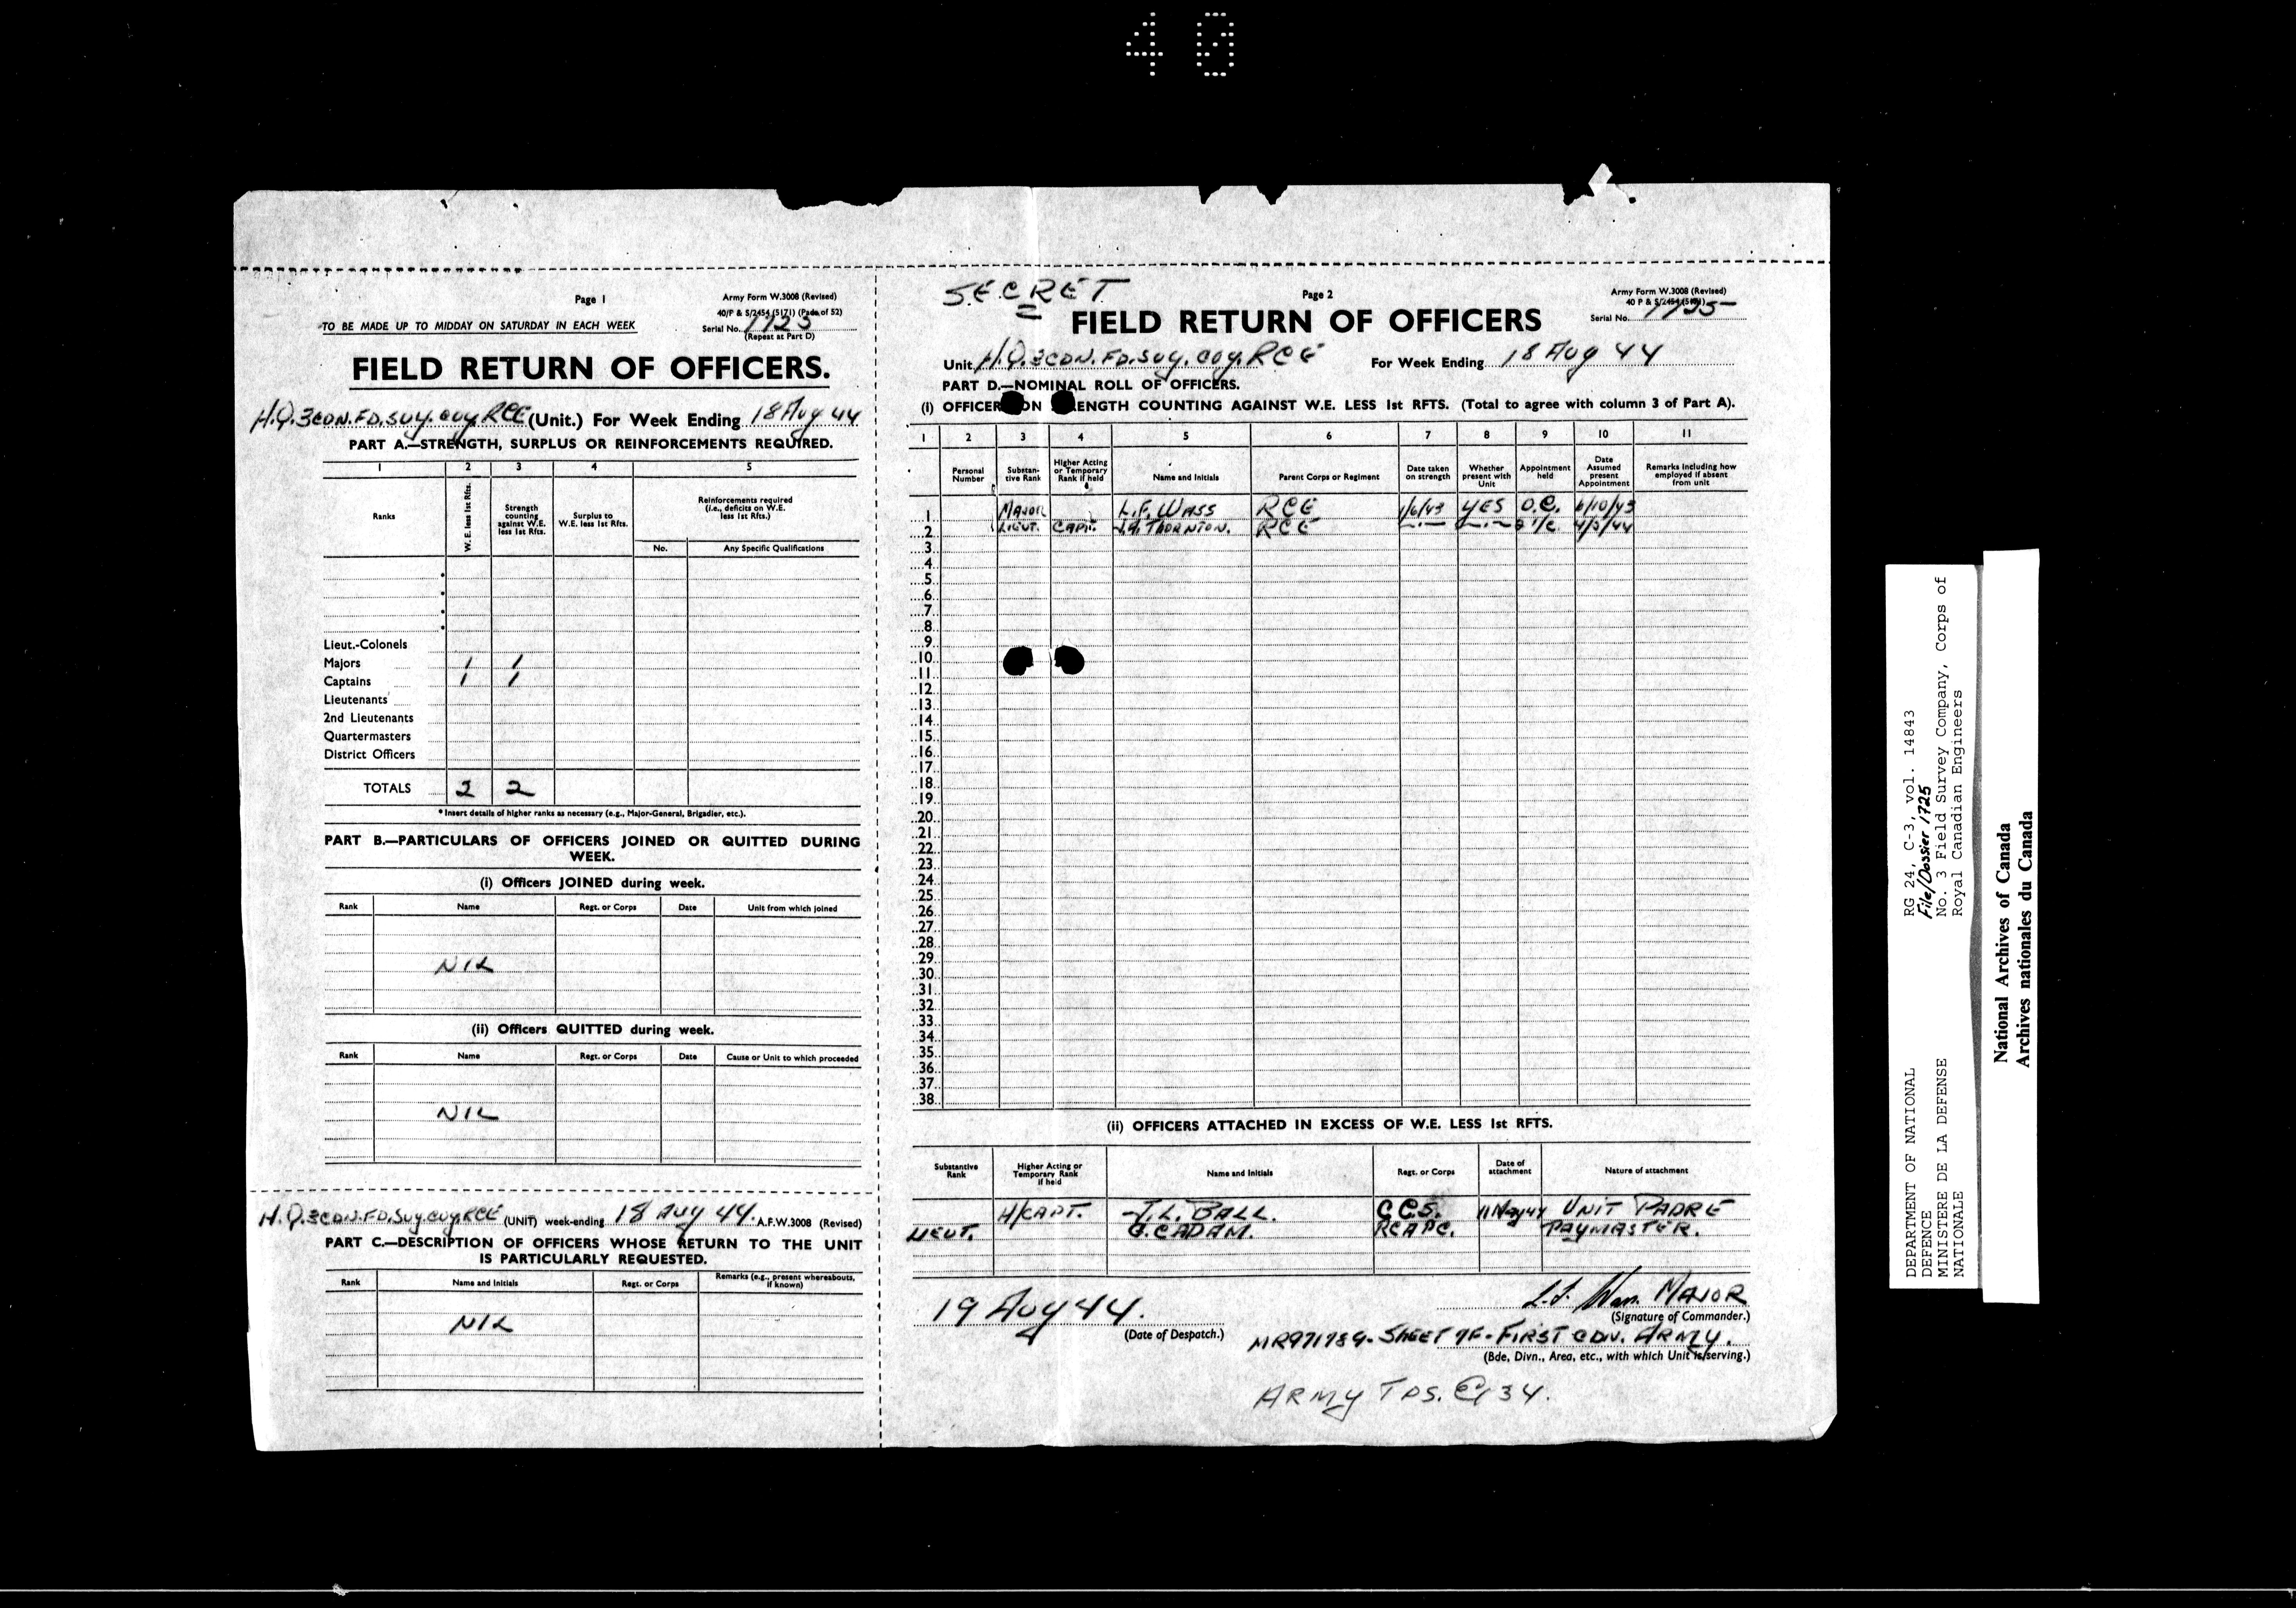 40
Page 1
Army Form W.3008 (Revised)
40/P & S/2454 (5171) (Pads of 52)
TO BE MADE UP TO MIDDAY ON SATURDAY IN EACH WEEK
Serial No.
(Repeat at Part D)
FIELD RETURN OF OFFICERS.
H.Q. 3 CDN. FD. SVY. COY. RCE (Unit.) For Week Ending 18 Aug 44
PART A.—STRENGTH, SURPLUS OR REINFORCEMENTS REQUIRED.
1 2 3 4 5
Ranks
W. E. less 1st Rfts.
Strength counting against W.E. less 1st Rfts.
Surplus to W.E. less 1st Rfts.
Reinforcements required (i.e., deficits on W.E. less 1st Rfts.)
No. Any Specific Qualifications
Lieut.-Colonels
Majors 1 1
Captains 1 1
Lieutenants
2nd Lieutenants
Quartermasters
District Officers
TOTALS 2 2
* Insert details of higher ranks as necessary (e.g., Major-General, Brigadier, etc.).
PART B.—PARTICULARS OF OFFICERS JOINED OR QUITTED DURING
WEEK.
(i) Officers JOINED during week.
Rank Name Regt. or Corps Date Unit from which joined
NIL
(ii) Officers QUITTED during week.
Rank Name Regt. or Corps Date Cause or Unit to which proceeded
NIL
H.Q. 3 CDN. FD. SVY. COY. RCE (UNIT) week-ending 18 AUG 44. A.F.W.3008 (Revised)
PART C.—DESCRIPTION OF OFFICERS WHOSE RETURN TO THE UNIT
IS PARTICULARLY REQUESTED.
Rank Name and Initials Regt. or Corps Remarks (e.g., present whereabouts, if known)
NIL
SECRET
Page 2
Army Form W.3008 (Revised)
40 P & S/2454 (5171)
Serial No.
FIELD RETURN OF OFFICERS
Unit H.Q. 3 CDN. FD. SVY. COY. RCE For Week Ending 18 Aug 44
PART D.—NOMINAL ROLL OF OFFICERS.
(i) OFFICER ON ENGTH COUNTING AGAINST W.E. LESS 1st RFTS. (Total to agree with column 3 of Part A).
1 2 3 4 5 6 7 8 9 10 11
Personal Number
Substantive Rank
Higher Acting or Temporary Rank if held
Name and Initials
Parent Corps or Regiment
Date taken on strength
Whether present with Unit
Appointment held
Date Assumed present Appointment
Remarks including how employed if absent from unit
1 MAJOR L.F. WASS RCE 1/6/43 YES O.C. /10/43
2 LIEUT. CAPT. THORNTON. RCE
3
4
5
6
7
8
9
10
11
12
13
14
15
16
17
18
19
20
21
22
23
24
25
26
27
28
29
30
31
32
33
34
35
36
37
38
(ii) OFFICERS ATTACHED IN EXCESS OF W.E. LESS 1st RFTS.
Substantive Rank
Higher Acting or Temporary Rank if held
Name and Initials
Regt. or Corps
Date of attachment
Nature of attachment
H/CAPT. J.L. BALL. C.C.S. 11 May 44 UNIT PADRE
LIEUT. G.C ADAM. RCAPC. PAYMASTER.
19 Aug 44.
(Date of Despatch.)
L.F. Wass MAJOR
(Signature of Commander.)
MR971789 - SHEET 7F - FIRST CDN. ARMY.
(Bde, Divn., Area, etc., with which Unit is serving.)
ARMY TPS. 34.
DEPARTMENT OF NATIONAL
DEFENCE
MINISTERE DE LA DEFENSE
NATIONALE
RG 24, C-3, vol. 14843
File/Dossier 1725
No. 3 Field Survey Company, Corps of
Royal Canadian Engineers
National Archives of Canada
Archives nationales du Canada